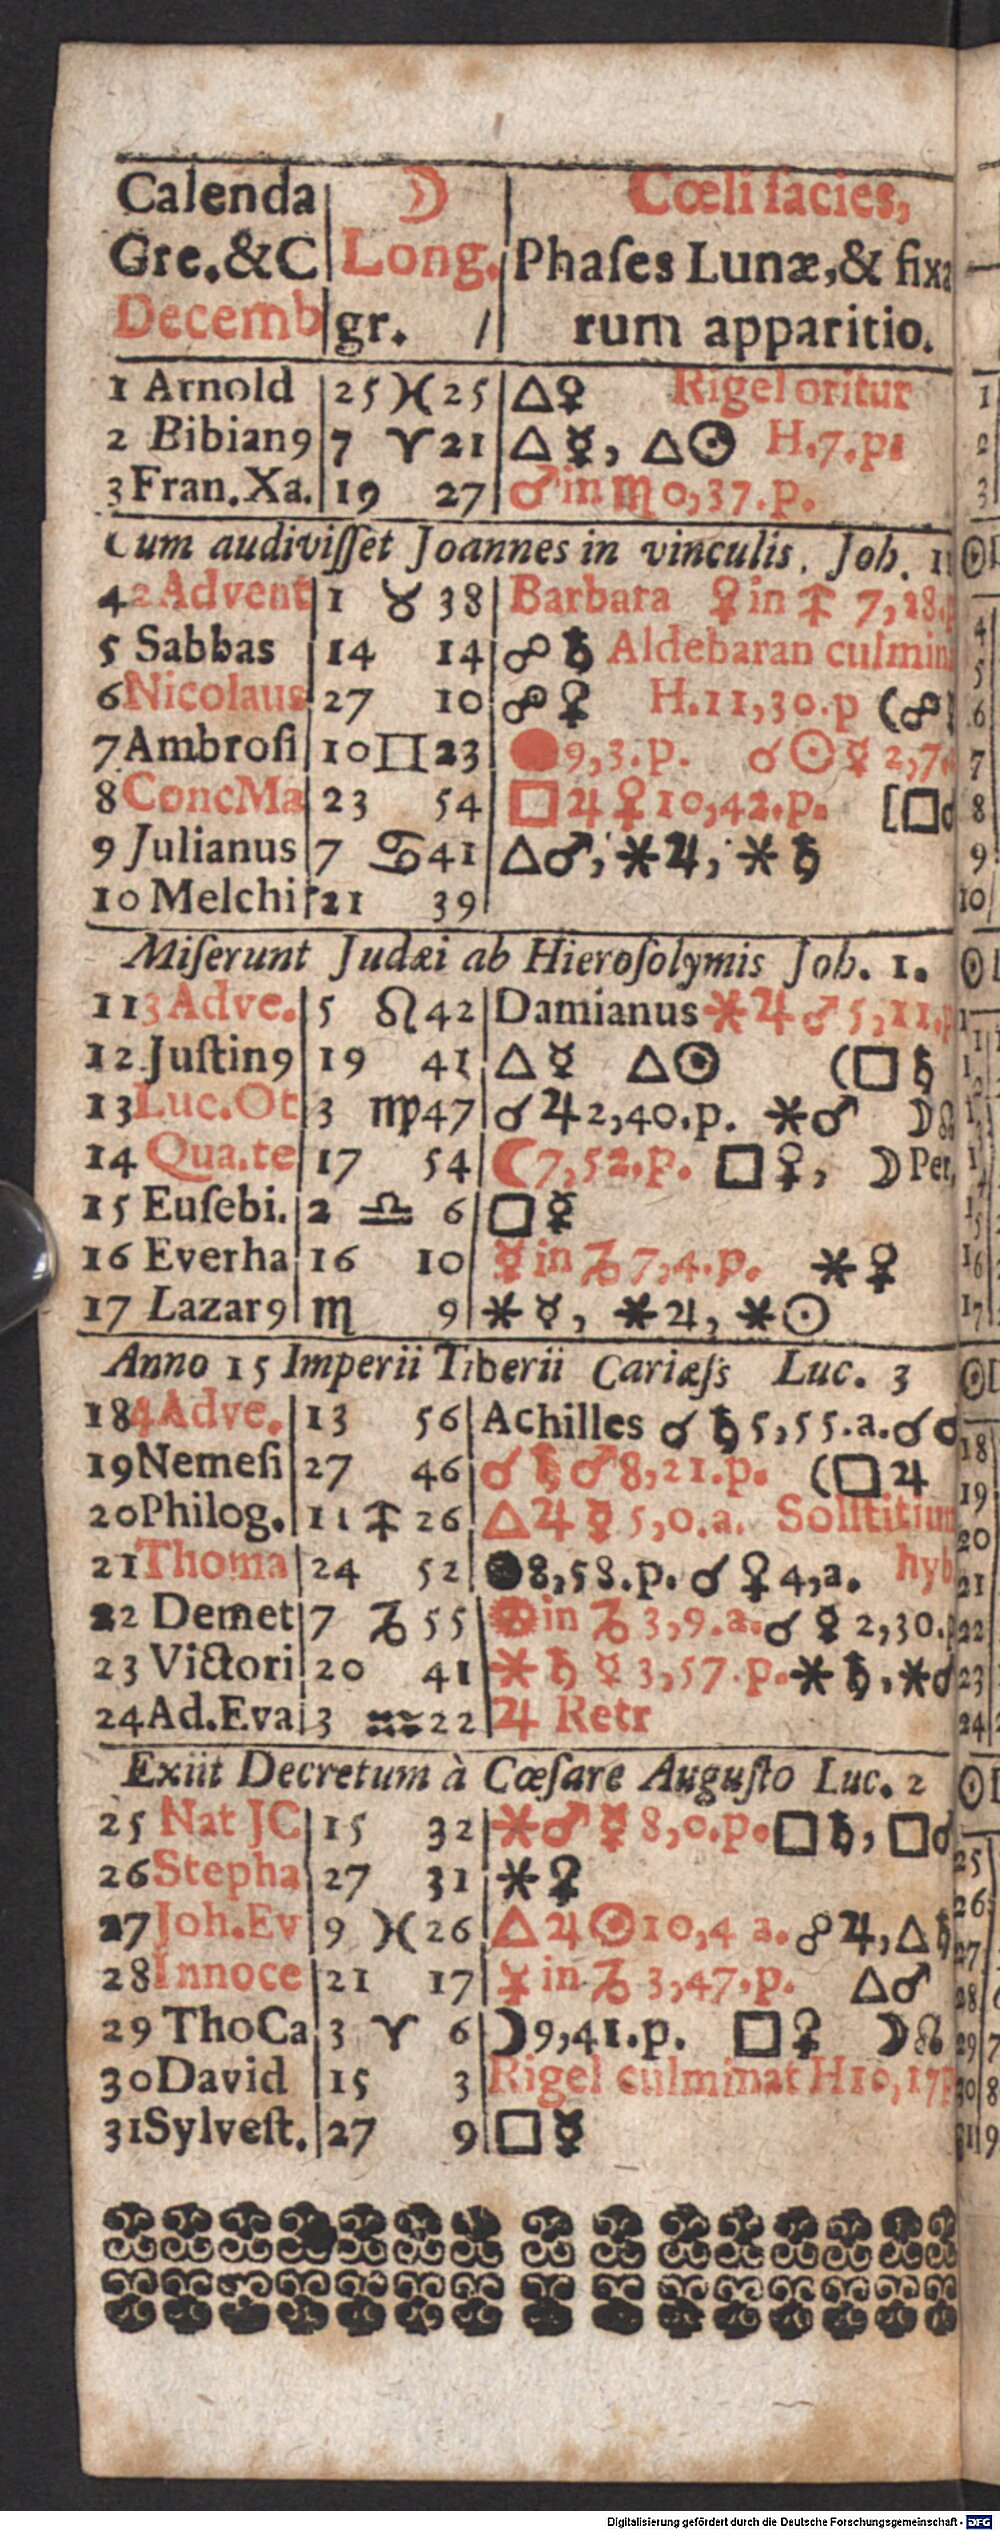 Calenda ☽ Cœli facies,
Gre.&C Long. Phaſes Lunæ,& fixa
Decemb gr. / rum apparitio.
1 Arnold 25 ♓ 25 △♀ Rigel oritur
2 Bibian9 7 ♈ 21 △ ☿, △☉ H.7.p.
3 Fran.Xa. 19 27 ♂ in ♏ 0,37.p.
Cum audiviſſet Joannes in vinculis. Joh. 11
4 2 Advent 1 ♉ 38 Barbara ♀ in ♐ 7,28.p
5 Sabbas 14 14 ☍ ♄ Aldebaran culmin
6 Nicolaus 27 10 ☍ ♀ H.11,30.p (☍
7 Ambroſi 10 ♊ 23 ● 9,3.p. ☌ ☉ ☿ 2,7.
8 ConcMa 23 54 □ ♃ ♀ 10,42.p. [□♂
9 Julianus 7 ♋ 41 △♂, ⚹♃, ⚹ ♄
10 Melchi 21 39
Miſerunt Judæi ab Hieroſolymis Joh. 1.
11 3 Adve. 5 ♌ 42 Damianus ⚹ ♃ ♂ 5,11.p
12 Juſtin9 19 41 △ ☿ △☉ (□ ♄
13 Luc.Ot 3 ♍ 47 ☌ ♃ 2,40.p. ⚹♂ ☽☊
14 Qua.te 17 54 ☾ 7,52.p. □ ♀, ☽ Per.
15 Euſebi. 2 ♎ 6 □ ☿
16 Everha 16 10 ☿ in ♑ 7,4.p. ⚹ ♀
17 Lazar9 ♏ 9 ⚹ ☿, ⚹ ♃, ⚹☉
Anno 15 Imperii Tiberii Cariæſs Luc. 3
18 4 Adve. 13 56 Achilles ☌ ♄ 5,55.a. ☌ ♂
19 Nemeſi 27 46 ☌ ♄ ♂ 8,21.p. (□ ♃
20 Philog. 11 ♐ 26 △ ♃ ☿ 5,0.a. Solſtitium
21 Thoma 24 52 ● 8,58.p. ☌ ♀ 4,a. hyb
22 Demet 7 ♑ 55 ☉ in ♑ 3,9.a. ☌ ☿ 2,30.p
23 Victori 20 41 ⚹ ♄ ☿ 3,57.p. ⚹ ♄, ⚹♂
24 Ad.Eva 3 ♒ 22 ♃ Retr
Exiit Decretum à Cœſare Auguſto Luc. 2
25 Nat JC 15 32 ⚹♂ ☿ 8,0.p. □ ♄, □♂
26 Stepha 27 31 ⚹ ♀
27 Joh.Ev 9 ♓ 26 △ ♃ ☉ 10,4 a. ☍ ♃, △ ♄
28 Innoce 21 17 ☿ in ♑ 3,47.p. △♂
29 ThoCa 3 ♈ 6 ☽ 9,41.p. □ ♀ ☽☊
30 David 15 3 Rigel culminat H10,17p
31 Sylveſt. 27 9 □ ☿
Digitalisierung gefördert durch die Deutsche Forschungsgemeinschaft - DFG